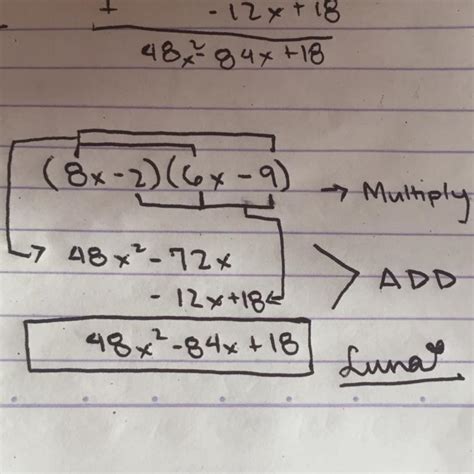 + -12x+18
48x²-84x+18
(8x-2)(6x-9) → Multiply
48x²-72x
-12x+18
> ADD
48x²-84x+18
Luna